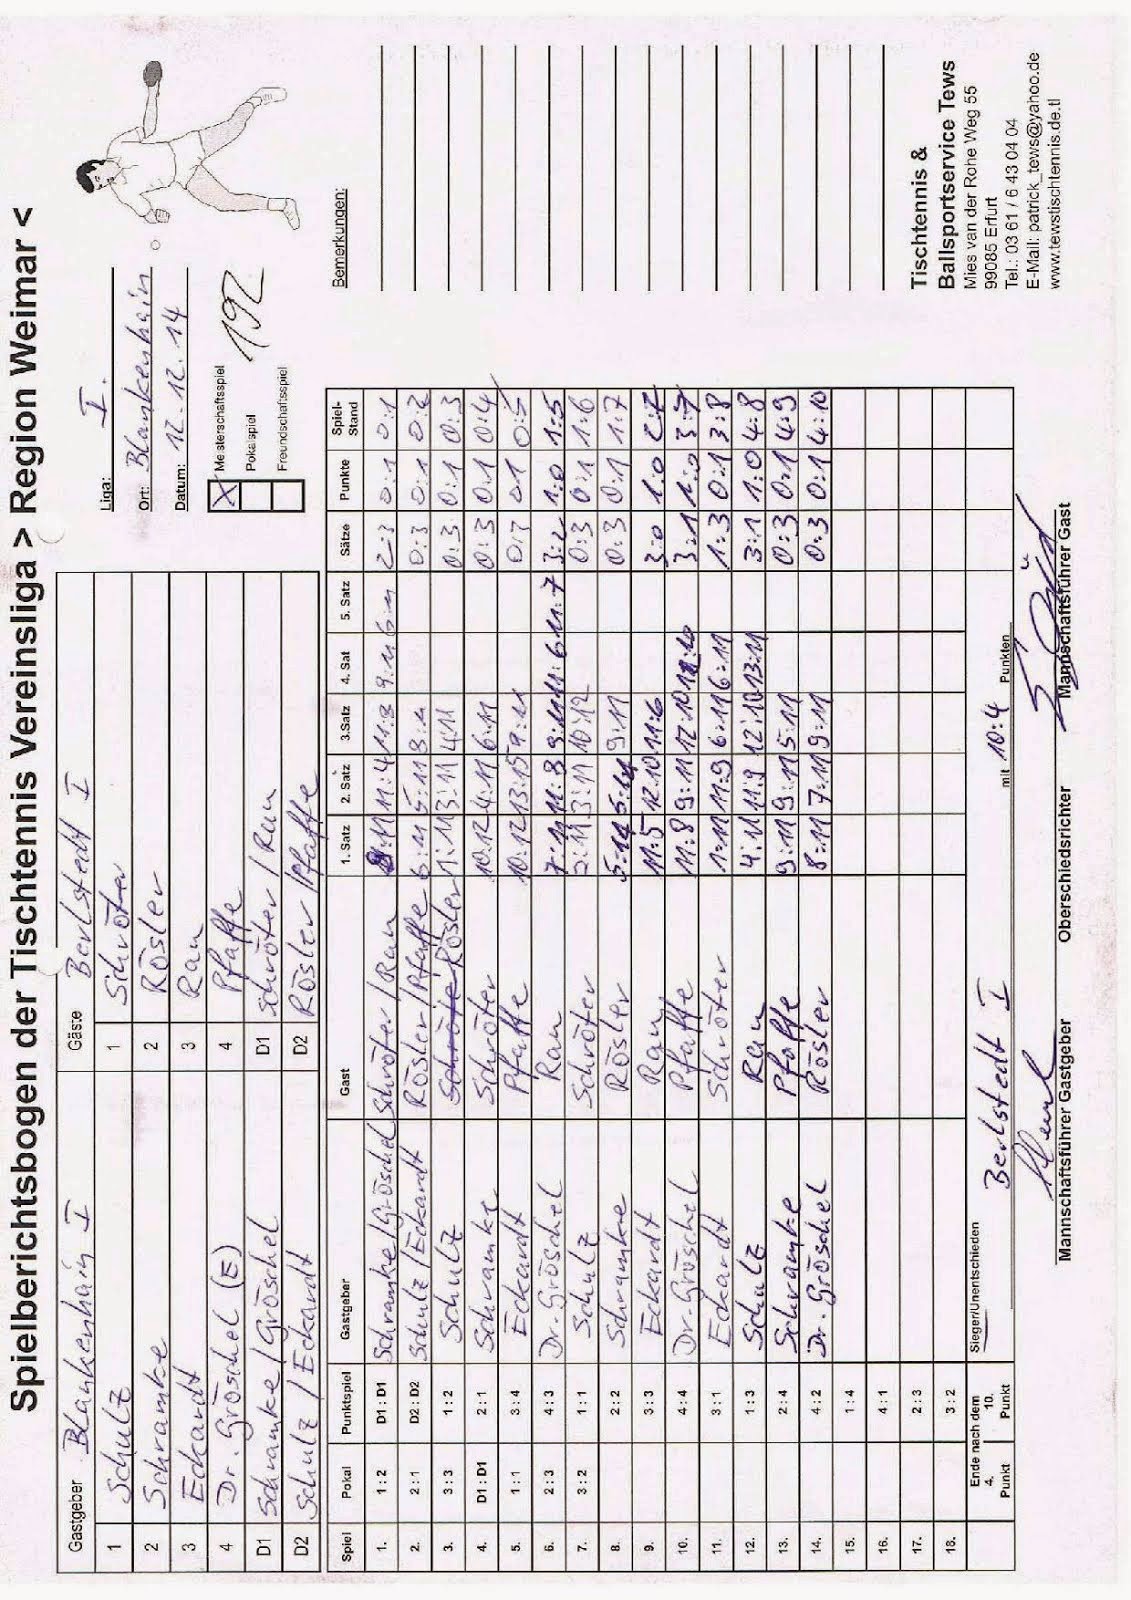 Spielberichtsbogen der Tischtennis Vereinsliga > Region Weimar <
Gastgeber Blankenhain I Gäste Berlstedt I
1 Schulz 1 Schröter
2 Schramke 2 Rösler
3 Eckardt 3 Rau
4 Dr. Gröschel (E) 4 Pfaffe
D1 Schramke/Gröschel D1 Schröter/Rau
D2 Schulz/Eckardt D2 Rösler/Pfaffe
Liga: I.
Ort: Blankenhain
Datum: 12.12.14
X Meisterschaftsspiel
Pokalspiel
Freundschaftsspiel
192
Spiel Pokal Punktspiel Gastgeber Gast 1. Satz 2. Satz 3.Satz 4. Sat 5. Satz Sätze Punkte Spiel-Stand
1. 1 : 2 D1 : D1 Schramke/Gröschel Schröter/Rau 11:4 11:8 9:11 6:11 2:3 0:1 0:1
2. 2 : 1 D2 : D2 Schulz/Eckardt Rösler/Pfaffe 6:11 5:11 8:11 0:3 0:1 0:2
3. 3 : 3 1 : 2 Schulz Schröter Rösler 1:11 3:11 4:11 0:3 0:1 0:3
4. D1 : D1 2 : 1 Schramke Schröter 10:12 4:11 6:11 0:3 0:1 0:4
5. 1 : 1 3 : 4 Eckardt Pfaffe 10:12 13:15 9:11 0:3 0:1 0:5
6. 2 : 3 4 : 3 Dr. Gröschel Rau 7:11 11:8 9:11 11:6 11:7 3:2 1:0 1:5
7. 3 : 2 1 : 1 Schulz Schröter 2:11 3:11 10:12 0:3 0:1 1:6
8. 2 : 2 Schramke Rösler 5:11 5:11 9:11 0:3 0:1 1:7
9. 3 : 3 Eckardt Rau 11:5 12:10 11:6 3:0 1:0 2:7
10. 4 : 4 Dr. Gröschel Pfaffe 11:8 9:11 12:10 12:10 3:1 1:0 3:7
11. 3 : 1 Eckardt Schröter 1:11 11:9 6:11 6:11 1:3 0:1 3:8
12. 1 : 3 Schulz Rau 4:11 11:9 12:10 13:11 3:1 1:0 4:8
13. 2 : 4 Schramke Pfaffe 9:11 9:11 5:11 0:3 0:1 4:9
14. 4 : 2 Dr. Gröschel Rösler 8:11 7:11 9:11 0:3 0:1 4:10
15. 1 : 4
16. 4 : 1
17. 2 : 3
18. 3 : 2
Ende nach dem
4. Punkt 10. Punkt
Sieger/Unentschieden Berlstedt I mit 10:4 Punkten
Mannschaftsführer Gastgeber Oberschiedsrichter Mannschaftsführer Gast
Bemerkungen:
Tischtennis &
Ballsportservice Tews
Mies van der Rohe Weg 55
99085 Erfurt
Tel.: 03 61 / 6 43 04 04
E-Mail: patrick_tews@yahoo.de
www.tewstischtennis.de.tl